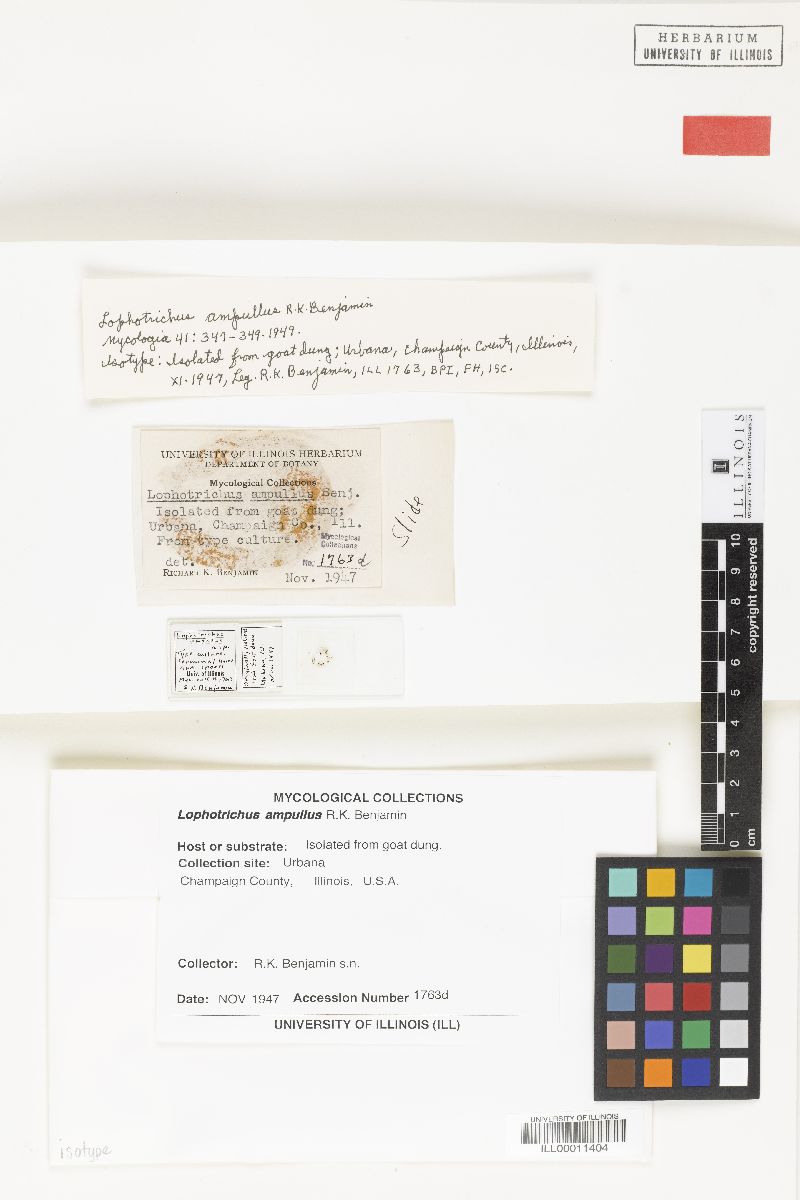 HERBARIUM
UNIVERSITY OF ILLINOIS
Lophotrichus ampullus R.K. Benjamin
Mycologia 41: 347-349. 1949.
Isotype: Isolated from goat dung; Urbana, Champaign County, Illinois,
XI. 1947, Leg. R.K. Benjamin, ILL 1763, BPI, FH, ISC.
UNIVERSITY OF ILLINOIS HERBARIUM
DEPARTMENT OF BOTANY
Mycological Collections
Lophotrichus ampullus Benj.
Isolated from goat dung;
Urbana, Champaign Co., Ill.
From type culture.
Mycological
Collections
No. 1763d
det.
RICHARD K. BENJAMIN
Nov. 1947
Slide
Type culture.
Univ. of Illinois
R.K. Benjamin
ILLINOIS
0 1 2 3 4 5 6 7 8 9 10
cm
copyright reserved
MYCOLOGICAL COLLECTIONS
Lophotrichus ampullus R.K. Benjamin
Host or substrate: Isolated from goat dung.
Collection site: Urbana
Champaign County, Illinois, U.S.A.
Collector: R.K. Benjamin s.n.
Date: NOV 1947 Accession Number 1763d
UNIVERSITY OF ILLINOIS (ILL)
UNIVERSITY OF ILLINOIS
ILL00011404
isotype